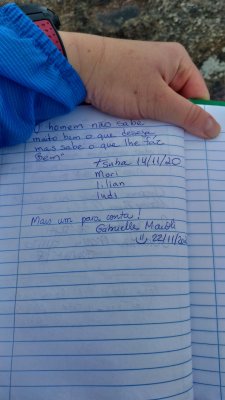 O homem não sabe
muito bem o que deseja,
mas sabe o que lhe faz
bem"
14/11/20
Mari
Lilian
Ludi
Mais um para conta!
Gabrielle
22/11/20